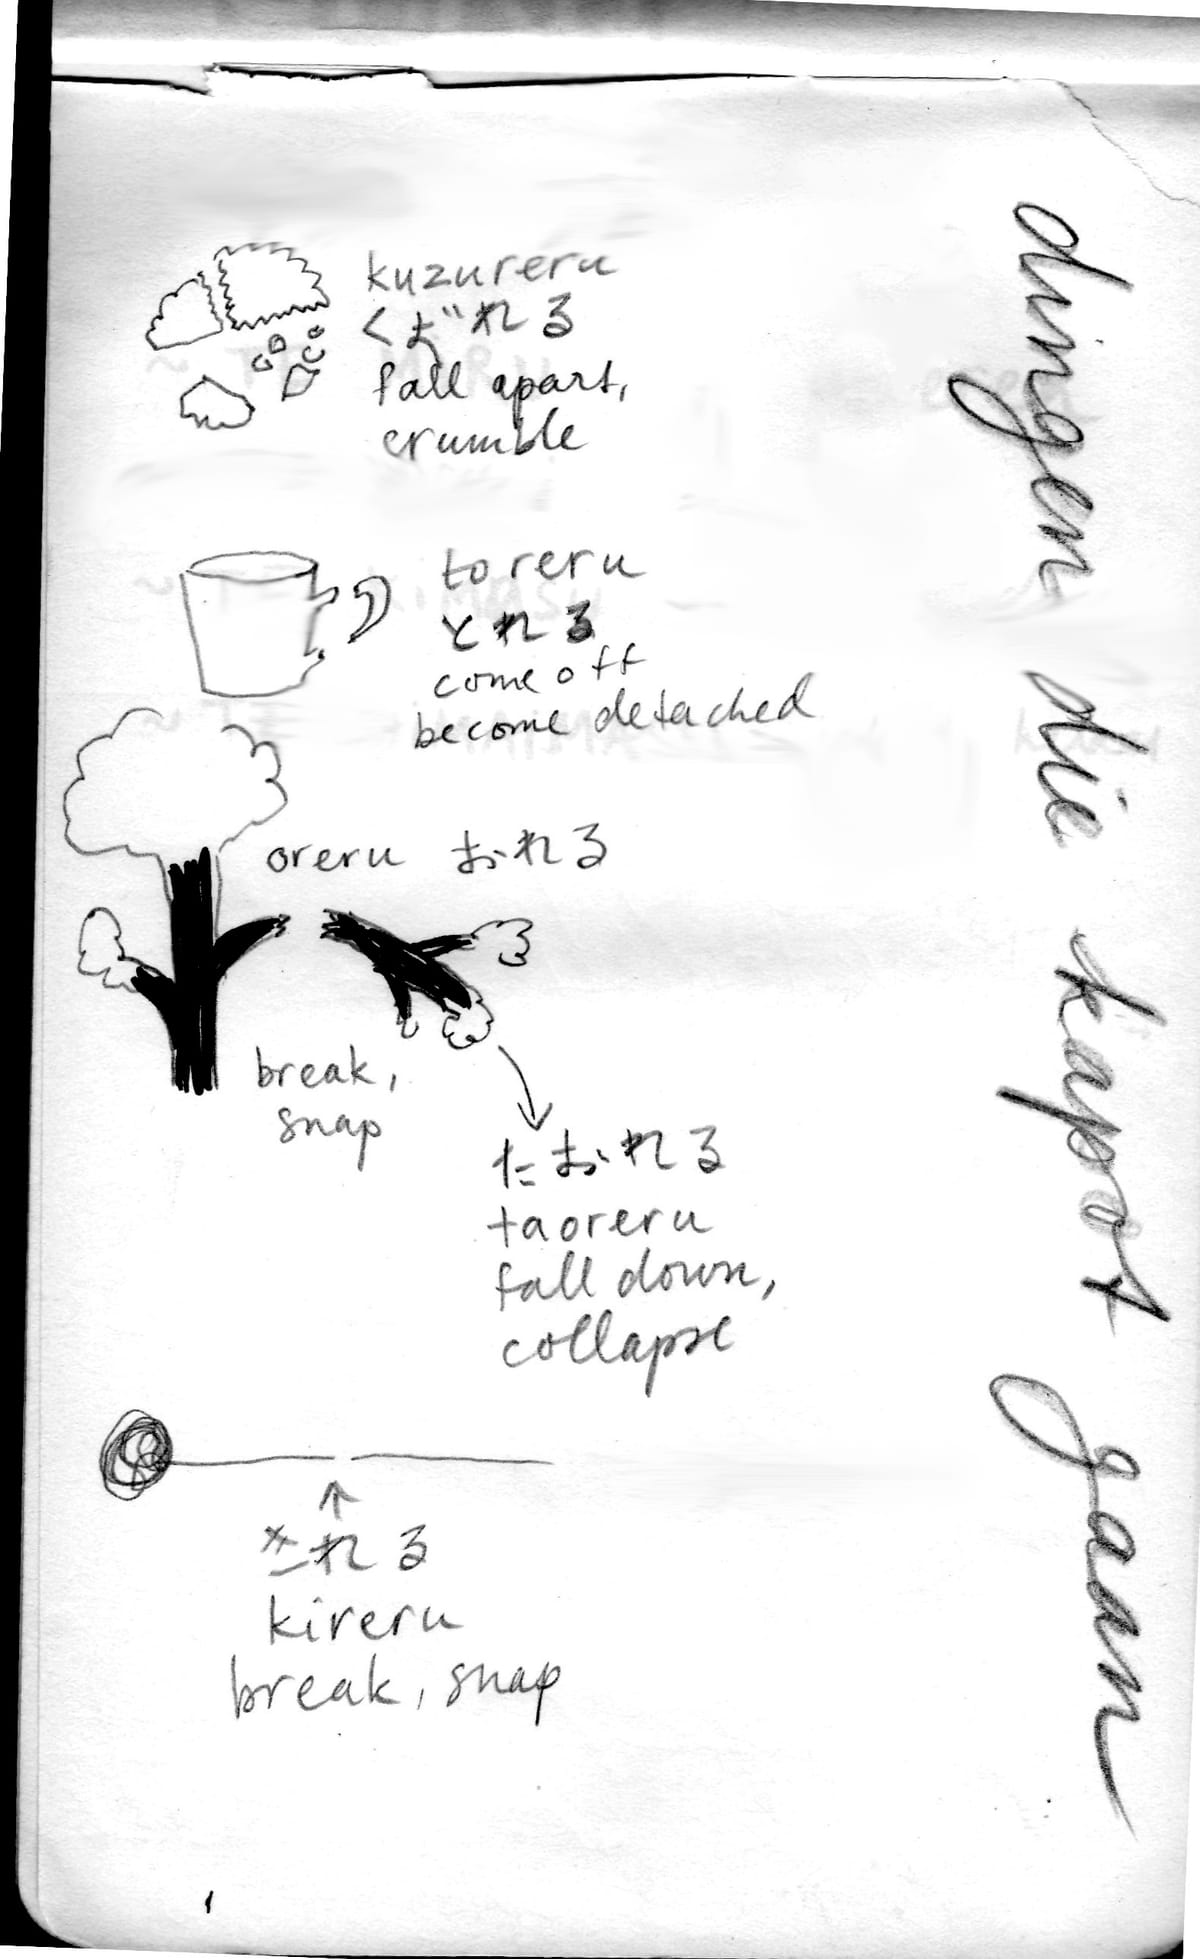 kuzureru
くずれる
fall apart,
crumble
toreru
とれる
come off
become detached
oreru おれる
break,
snap
たおれる
taoreru
fall down,
collapse
きれる
kireru
break, snap
dingen die kapot gaan